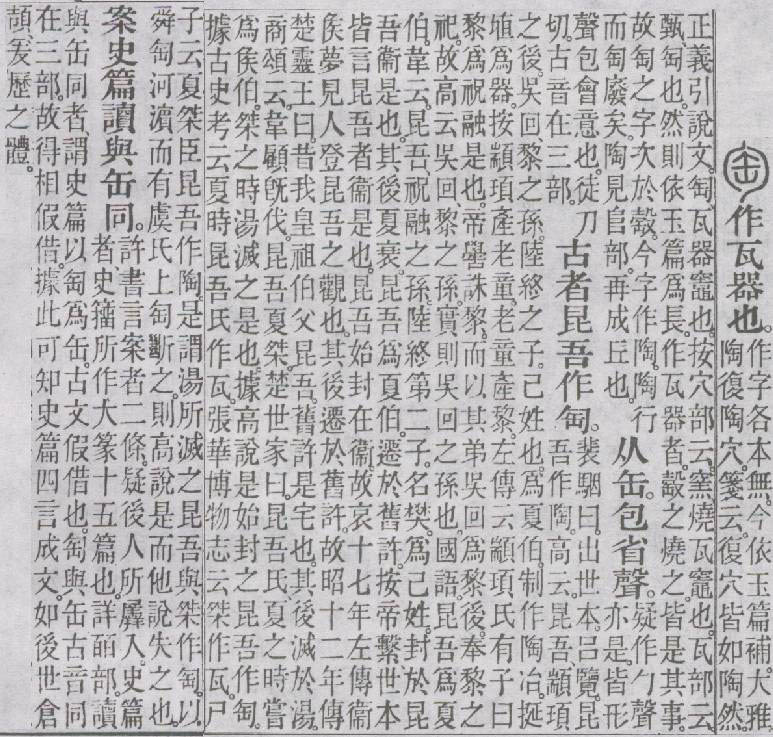 匋作瓦器也。
作字各本無。今依玉篇補。大雅
陶復陶穴。箋云。復穴皆如陶然。
正義引說文。匋、瓦器竈也。按穴部云。窯、燒瓦竈也。瓦部云
甄、匋也。然則依玉篇爲長。作瓦器者、㲉之燒之皆是其事。
故匋之字次於㲉。今字作陶。陶行
而匋廢矣。陶見𨸏部。再成丘也。
从缶。包省聲。
疑作勹聲
亦是。皆形
聲包會意也。徒刀
切。古音在三部。
古者昆吾作匋。
裴駰曰。出世本。呂覽昆
吾作陶。高云。昆吾、顓頊
之後。吳回黎之孫。陸終之子。己姓也。爲夏伯。制作陶冶。埏
埴爲器。按顓頊產老童。老童產黎。左傳云顓頊氏有子曰
黎爲祝融是也。帝嚳誅黎。而以其弟吳回爲黎後。奉黎之
祀。故高云吳回、黎之孫。實則吳回之孫也。國語。昆吾爲夏
伯。韋云。昆吾、祝融之孫。陸終第二子。名樊。爲己姓。封於昆
吾。衞是也。其後夏衰。昆吾爲夏伯。遷於舊許。按帝繫世本
皆言昆吾者衞是也。昆吾始封在衞。故哀十七年左傳衞
矦夢見人登昆吾之觀也。其後遷於舊許。故昭十二年傳
楚靈王曰。昔我皇祖伯父昆吾。舊許是宅也。其後滅於湯。
商頌云。韋顧旣伐。昆吾夏桀。楚世家曰。昆吾氏夏之時嘗
爲矦伯。桀之時湯滅之是也。據高說是始封之昆吾作匋。
據古史考云夏時昆吾氏作瓦。張華博物志云桀作瓦。尸
子云夏桀臣昆吾作陶。是謂湯所滅之昆吾與桀作匋。以
舜匋河濱而有虞氏上匋斷之。則高說是而他說失之也。
案史篇讀與缶同。
許書言案者二條。疑後人所羼入。史篇
者、史籒所作大篆十五篇也。詳皕部。讀
與缶同者、謂史篇以匋爲缶。古文假借也。匋與缶古音同
在三部。故得相假借。據此可知史篇四言成文。如後世倉
頡、爰歷之體。